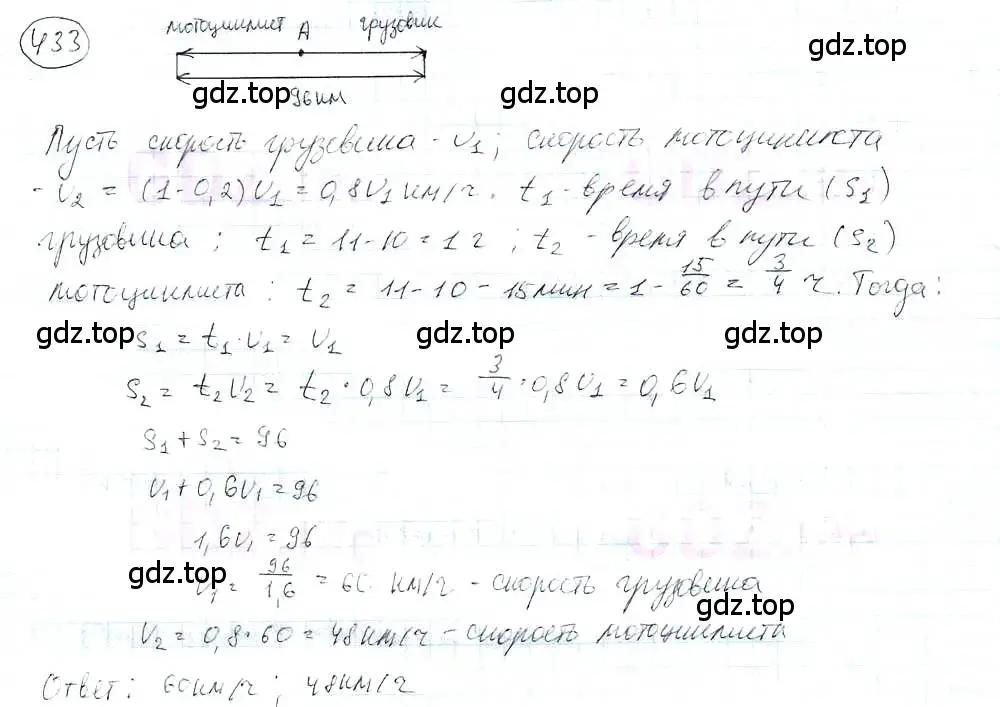 433
мотоциклист A грузовик
gdz.top gdz.top
96 км
Пусть скорость грузовика - v₁; скорость мотоциклиста
- v₂ = (1-0,2)v₁ = 0,8v₁ км/ч. t₁ - время в пути (S₁)
gdz.top gdz.top
грузовика ; t₁ = 11-10 = 1 ч ; t₂ - время в пути (S₂)
мотоциклиста : t₂ = 11-10 - 15 мин = 1 - 15/60 = 3/4 ч. Тогда:
gdz.top gdz.top gdz.top
S₁ = t₁·v₁ = v₁
S₂ = t₂v₂ = t₂ · 0,8v₁ = 3/4 · 0,8v₁ = 0,6v₁
S₁ + S₂ = 96
v₁ + 0,6v₁ = 96
1,6v₁ = 96
gdz.top
v₁ = 96/1,6 = 60 км/ч - скорость грузовика
gdz.top
v₂ = 0,8·60 = 48 км/ч - скорость мотоциклиста
Ответ: 60 км/ч ; 48 км/ч